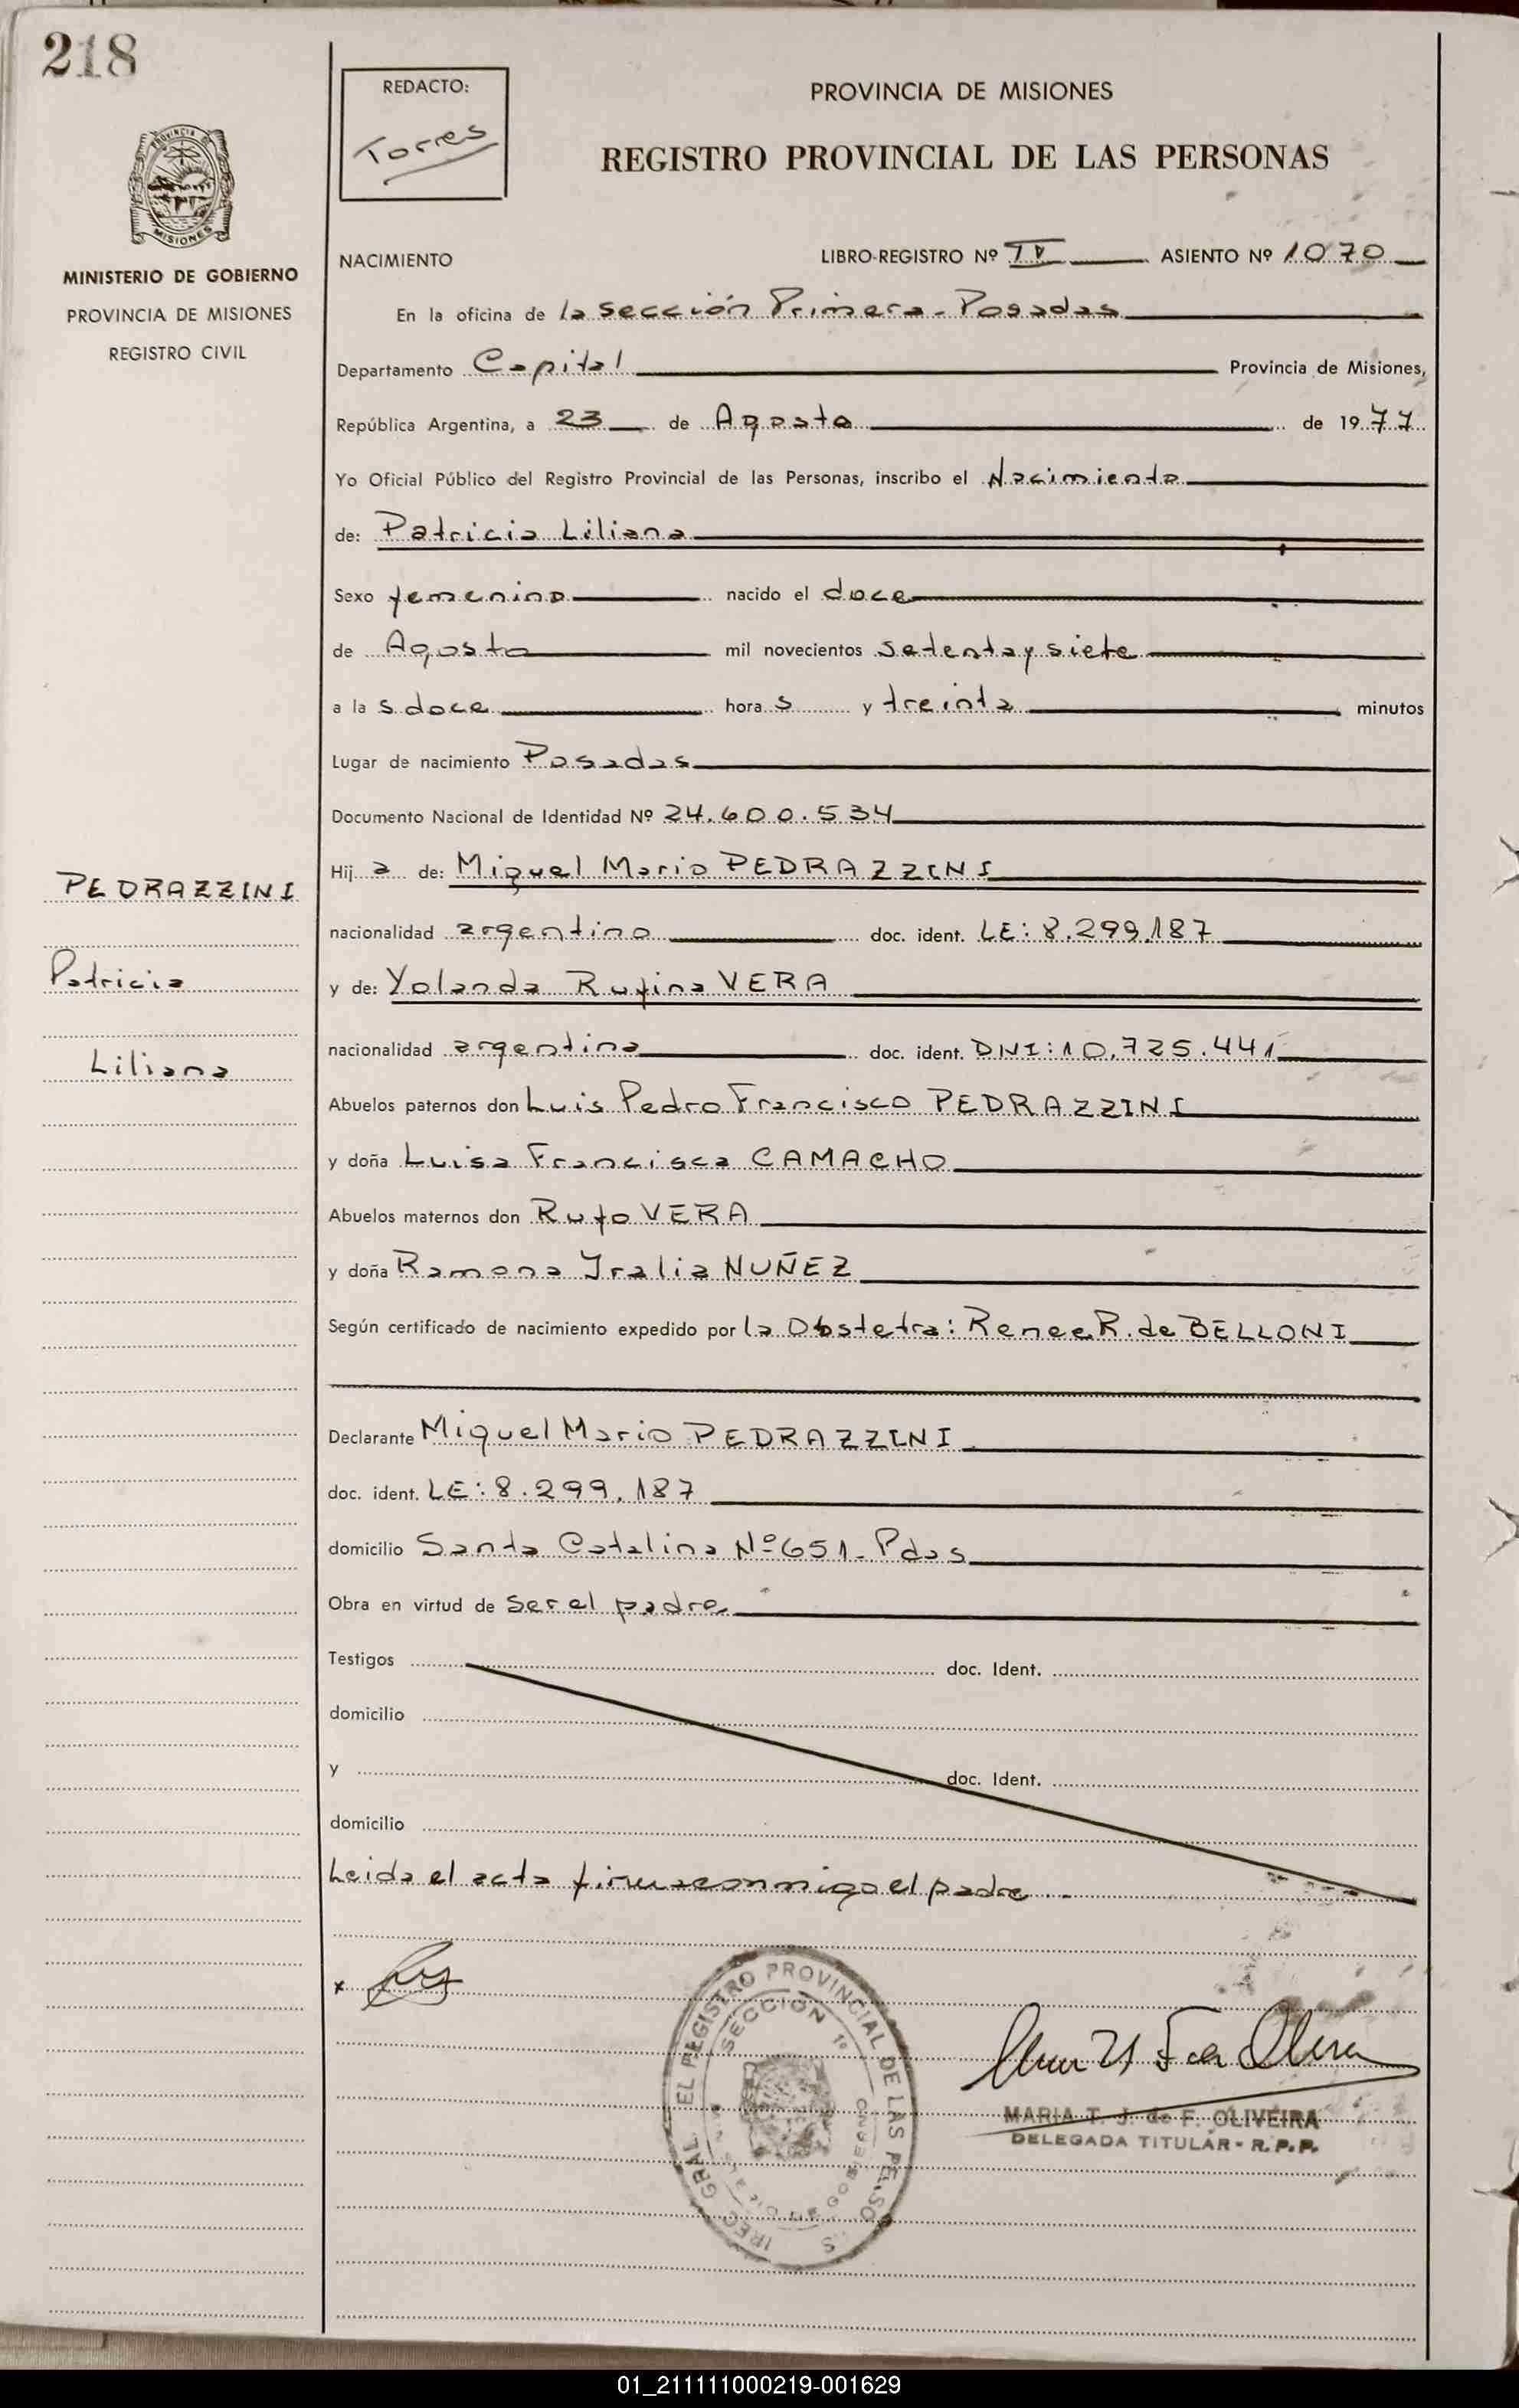 218
REDACTO:
Torres
PROVINCIA DE MISIONES
REGISTRO PROVINCIAL DE LAS PERSONAS
MISIONES
MINISTERIO DE GOBIERNO
PROVINCIA DE MISIONES
REGISTRO CIVIL
NACIMIENTO LIBRO-REGISTRO Nº IV ASIENTO Nº 1070
En la oficina de la sección Primera - Posadas
Departamento Capital Provincia de Misiones,
República Argentina, a 23 de Agosto de 1977
Yo Oficial Público del Registro Provincial de las Personas, inscribo el Nacimiento
de: Patricia Liliana
Sexo femenino nacido el doce
de Agosto mil novecientos setenta y siete
a la s doce hora s y treinta minutos
Lugar de nacimiento Posadas
Documento Nacional de Identidad Nº 24.600.534
Hij a de: Miguel Mario PEDRAZZINI
PEDRAZZINI
nacionalidad argentino doc. ident. LE: 8.299.187
Patricia
y de: Yolanda Rufina VERA
nacionalidad argentina doc. ident. DNI: 10.725.441
Liliana
Abuelos paternos don Luis Pedro Francisco PEDRAZZINI
y doña Luisa Francisca CAMACHO
Abuelos maternos don Rufo VERA
y doña Ramona Iralia NUÑEZ
Según certificado de nacimiento expedido por la Obstetra: Renee R. de BELLONI
Declarante Miguel Mario PEDRAZZINI
doc. ident. LE: 8.299.187
domicilio Santa Catalina Nº 651 - Pdas
Obra en virtud de ser el padre
Testigos doc. Ident.
domicilio
y doc. Ident.
domicilio
Leida el acta firma conmigo el padre
x
EL REGISTRO PROVINCIAL DE LAS
SECCION 1º
GOBIERNO
MARIA T. J. de F. OLIVEIRA
DELEGADA TITULAR - R.P.P.
01_211111000219-001629